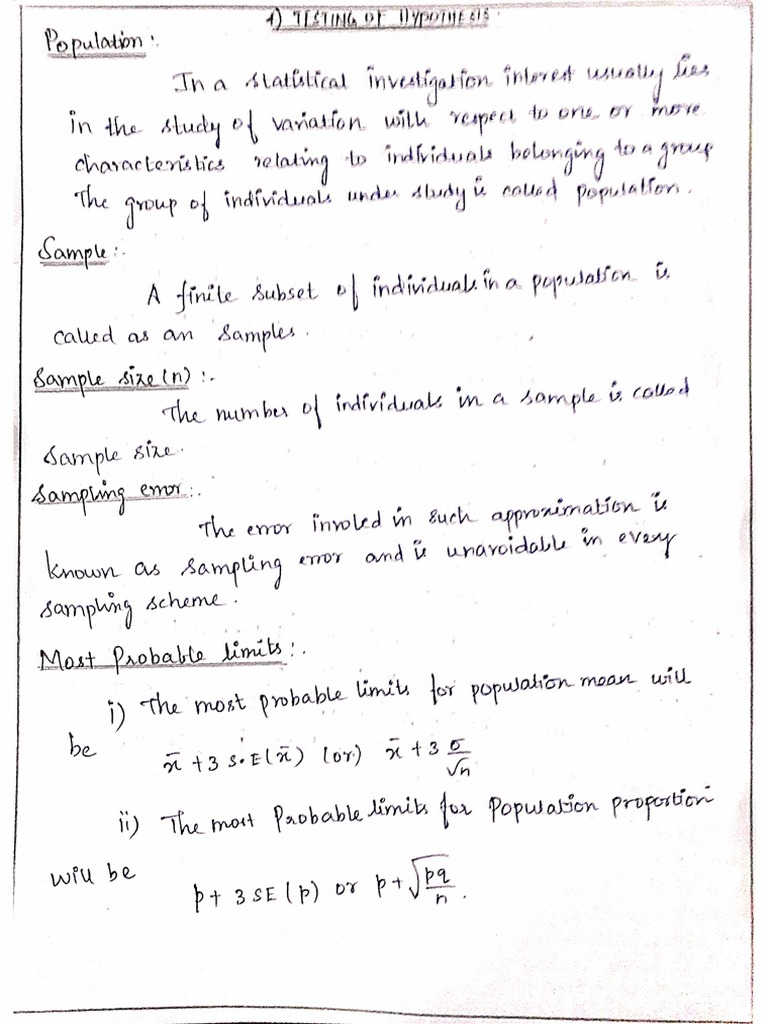 1) TESTING OF HYPOTHESIS
Population:
In a statistical investigation interest usually lies
in the study of variation with respect to one or more
characteristics relating to individuals belonging to a group
The group of individuals under study is called population.
Sample:-
A finite subset of individuals in a population is
called as an samples.
Sample size (n) :-
The number of individuals in a sample is called
sample size.
Sampling error:-
The error involed in such approximation is
known as sampling error and is unavoidable in every
sampling scheme.
Most Probable limits:-
i) The most probable limits for population mean will
be
x̄ + 3 S.E(x̄) (or) x̄ + 3 σ/√n
ii) The most Probable limits for Population proportion
will be
p + 3 SE (p) or p + √(pq/n).